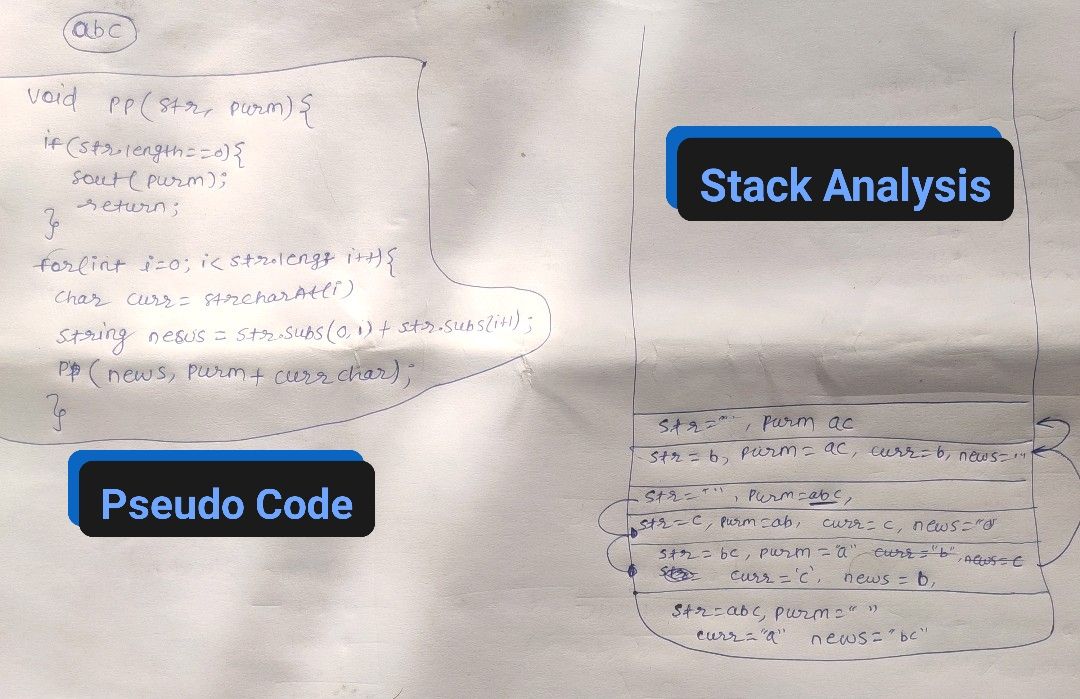 abc
void pp(str, purm){
if(str.length==0){
sout(purm);
return;
}
for(int i=0; i<str.lengt i++){
char curr = strcharAt(i)
string nesws = str.subs(0,i) + str.subs(i+1);
pp(news, purm+ currchar);
}
Pseudo Code
Stack Analysis
str="", purm ac
str = b, purm = ac, curr=b, news=""
str="", purm=abc,
str=c, purm=ab, curr=c, news=""
str=bc, purm="a" curr="b", news=c
curr='c', news=b,
str=abc, purm=" "
curr="a" news="bc"